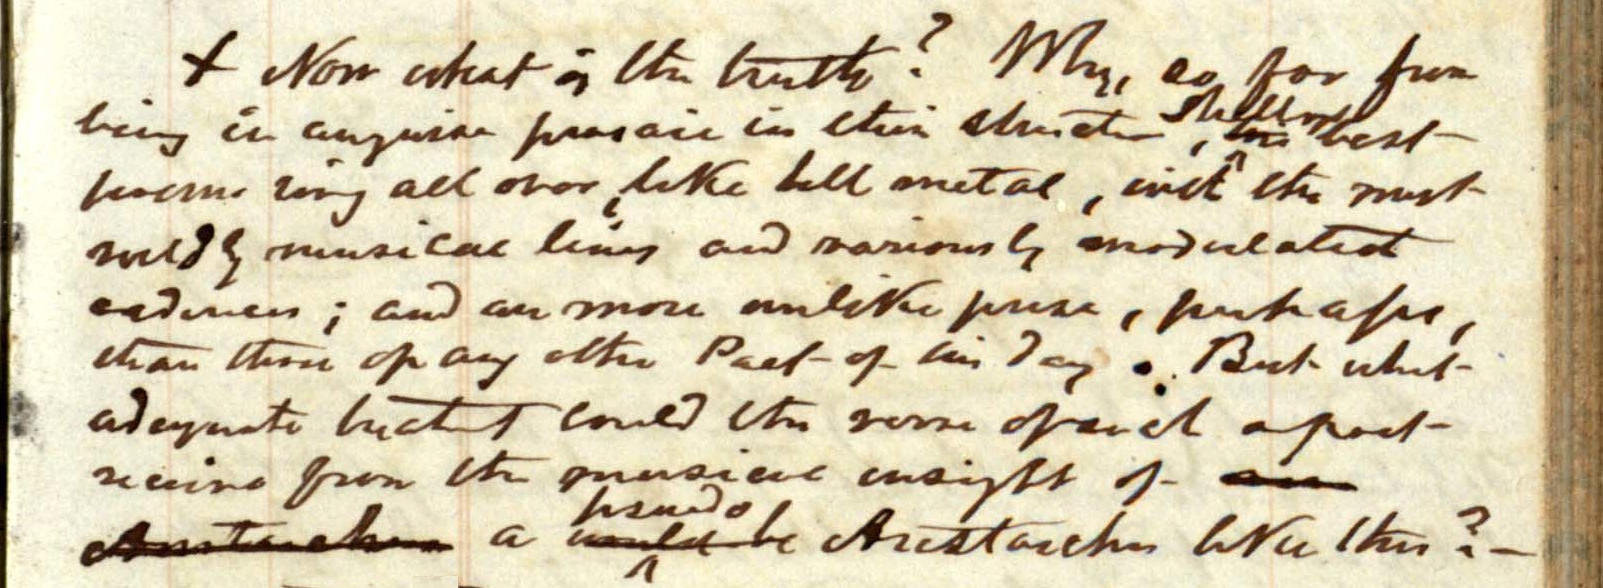 + Now what is the truth? Why, so far from
being in anywise prosaic in their structure, Shelley's best
poems ring all over, like bell metal, with the most
wildly musical lines and variously modulated
cadences; and are more unlike prose, perhaps,
than those of any other Poet of his day. But what
adequate treatment could the verse of such a poet
receive from the musical insight of an
Aristarchus a pseudo would be Aristarchus like this?—